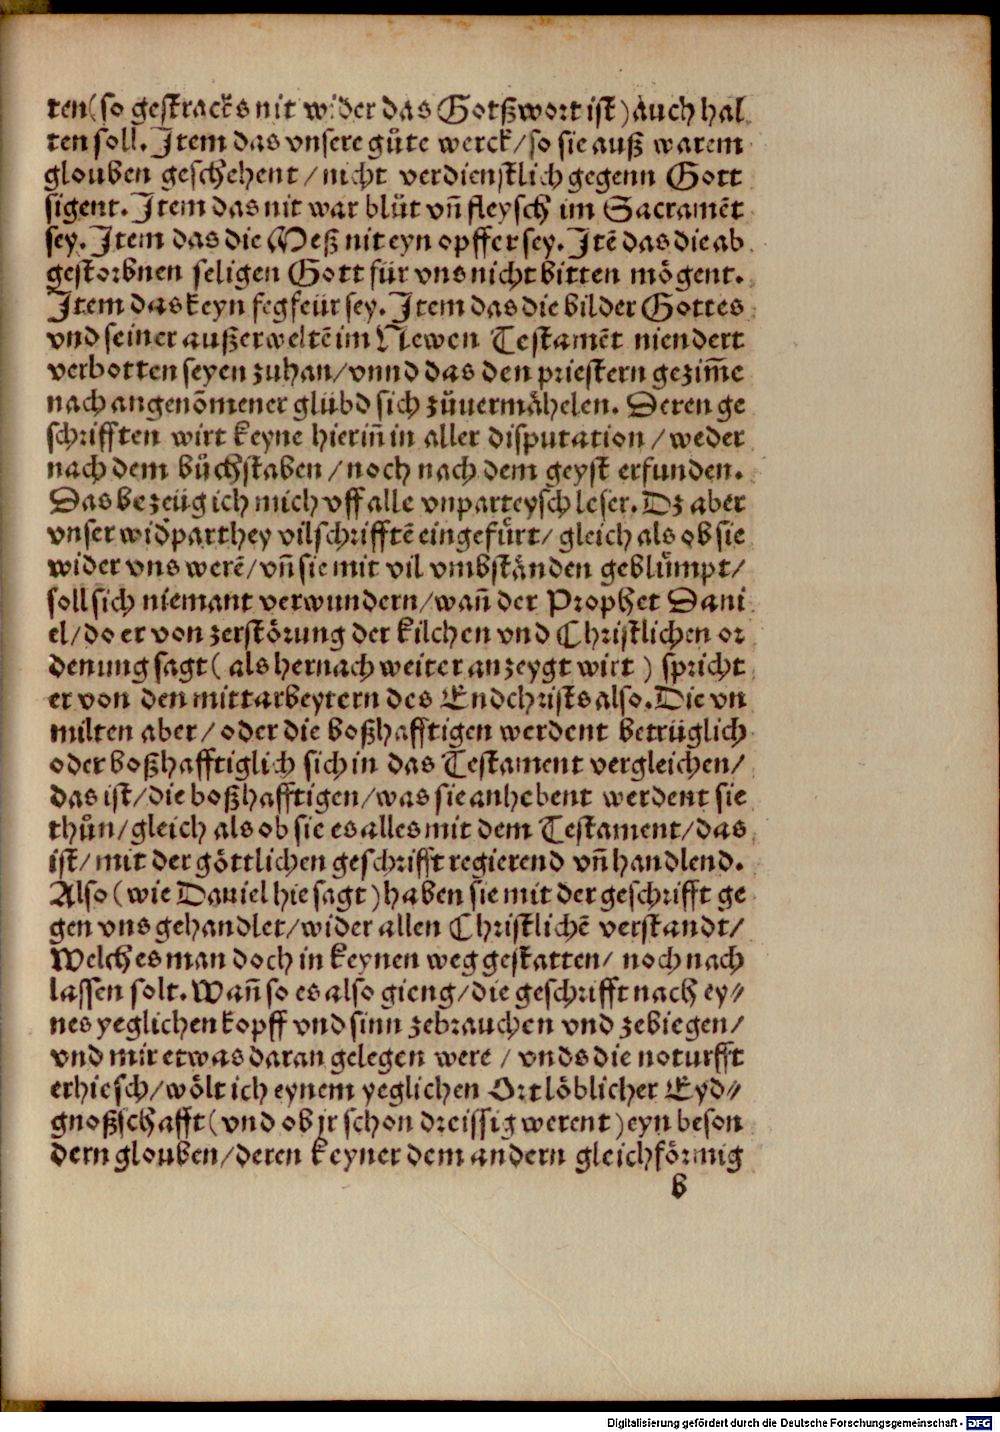 ten(so gestracks nit wider das Gotßwort ist) auch hal
ten soll. Item das vnsere gůte werck/so sie auß warem
glouben geschehent/nicht verdienstlich gegenn Gott
sigent. Item das nit war blůt vñ fleysch im Sacramẽt
sey. Item das die Meß nit eyn opffer sey. Itẽ das die ab
gestorbnen seligen Gott für vns nicht bitten mögent.
Item das keyn fegfeür sey. Item das die bilder Gottes
vnd seiner außerweltẽ im Newen Testamẽt niendert
verbotten seyen zuhan/vnnd das den priestern gezim̃e
nach angenõmener glübd sich zůuermähelen. Deren ge
schrifften wirt keyne hierin̄ in aller disputation/weder
nach dem bůchstaben/noch nach dem geyst erfunden.
Das bezeüg ich mich vff alle vnparteysch leser. Dz aber
vnser widp̄arthey vil schrifftẽ eingefürt/gleich als ob sie
wider vns werẽ/vñ sie mit vil vmbständen geblümpt/
soll sich niemant verwundern/wañ der Prophet Dani
el/do er von zerstörung der kilchen vnd Christlichen or
denung sagt( als hernach weiter anzeygt wirt ) spricht
er von den mittarbeytern des Endchrists also. Die vn
milten aber/oder die boßhafftigen werdent betrüglich
oder boßhafftiglich sich in das Testament vergleichen/
das ist/die boßhafftigen/was sie anhebent werdent sie
thůn/gleich als ob sie es alles mit dem Testament/das
ist/mit der göttlichen geschrifft regierend vñ handlend.
Also (wie Daniel hie sagt) haben sie mit der geschrifft ge
gen vns gehandlet/wider allen Christlichẽ verstandt/
Welches man doch in keynen weg gestatten/noch nach
lassen solt. Wañ so es also gieng/die geschrifft nach ey⸗
nes yeglichen kopff vnd sinn zebrauchen vnd zebiegen/
vnd mir etwas daran gelegen were / vnds die noturfft
erhiesch/wölt ich eynem yeglichen Ort löblicher Eyd⸗
gnoßschafft(vnd ob jr schon dreissig werent)eyn beson
dern glouben/deren keyner dem andern gleichförmig
b
Digitalisierung gefördert durch die Deutsche Forschungsgemeinschaft - DFG